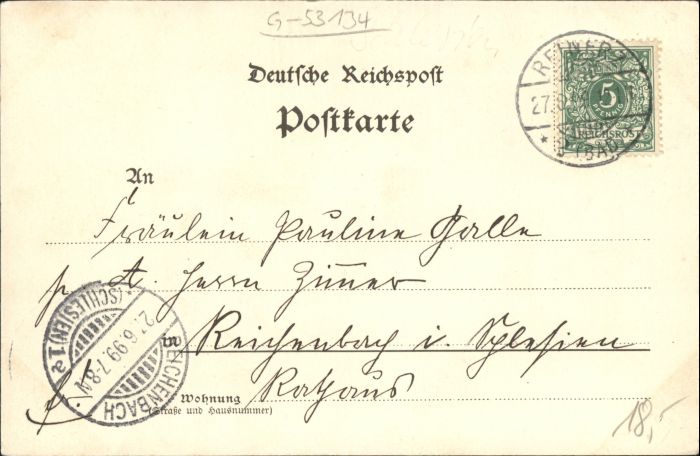 G-53134
Deutsche Reichspost
Postkarte
REINERZ
27.6
5
REICHSPOST
(BAD)
An
Fräulein Pauline Galle
p. A. Herrn Zimmer
Reichenbach i. Schlesien
Rathaus
Wohnung
(Straße und Hausnummer)
REICHENBACH
(SCHLESIEN) 1 a
27.6.99.7-8N
18,-